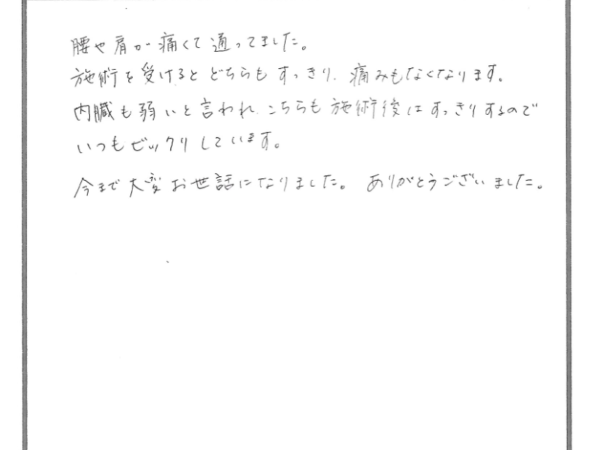 腰や肩が痛くて通ってました。
施術を受けるとどちらもすっきり、痛みもなくなります。
内臓も弱いと言われ、こちらも施術後はすっきりするので
いつもビックリしています。
今まで大変お世話になりました。 ありがとうございました。